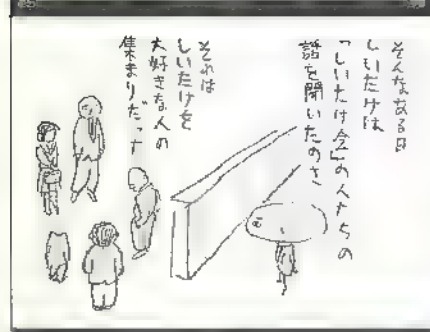 そんなある日
しいたけは
「しいたけ会」の人たちの
話を聞いたのさ
それは
しいたけを
大好きな人の
集まりだった